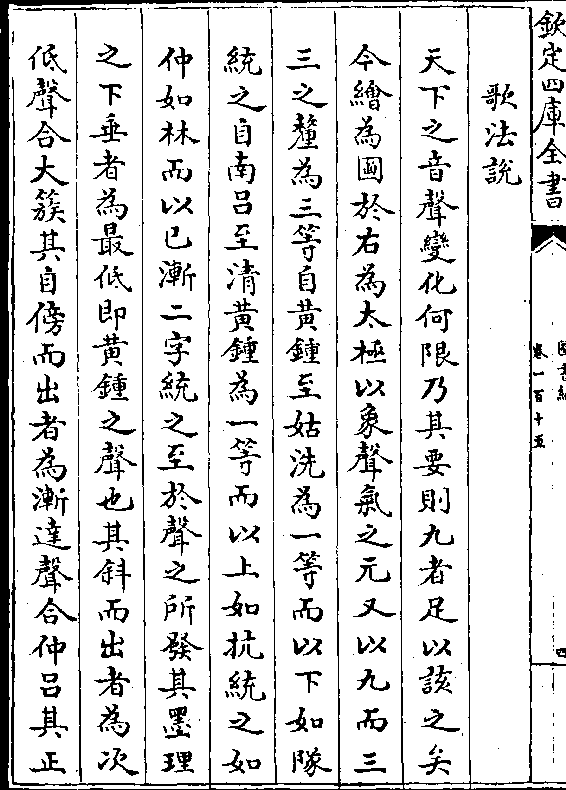 欽定四庫全書
卷一百十五
歌法說
天下之音聲變化何限乃其要則九者足以該之矣
今繪為圖於右為太極以象聲氣之元又以九而三
三之釐為三等自黃鍾至姑洗為一等而以下如隊
統之自南呂至清黃鍾為一等而以上如抗統之如
仲如林而以已漸二字統之至於聲之所發其墨理
之下垂者為最低即黃鍾之聲也其斜而出者為次
低聲合大簇其自傍而出者為漸達聲合仲呂其正